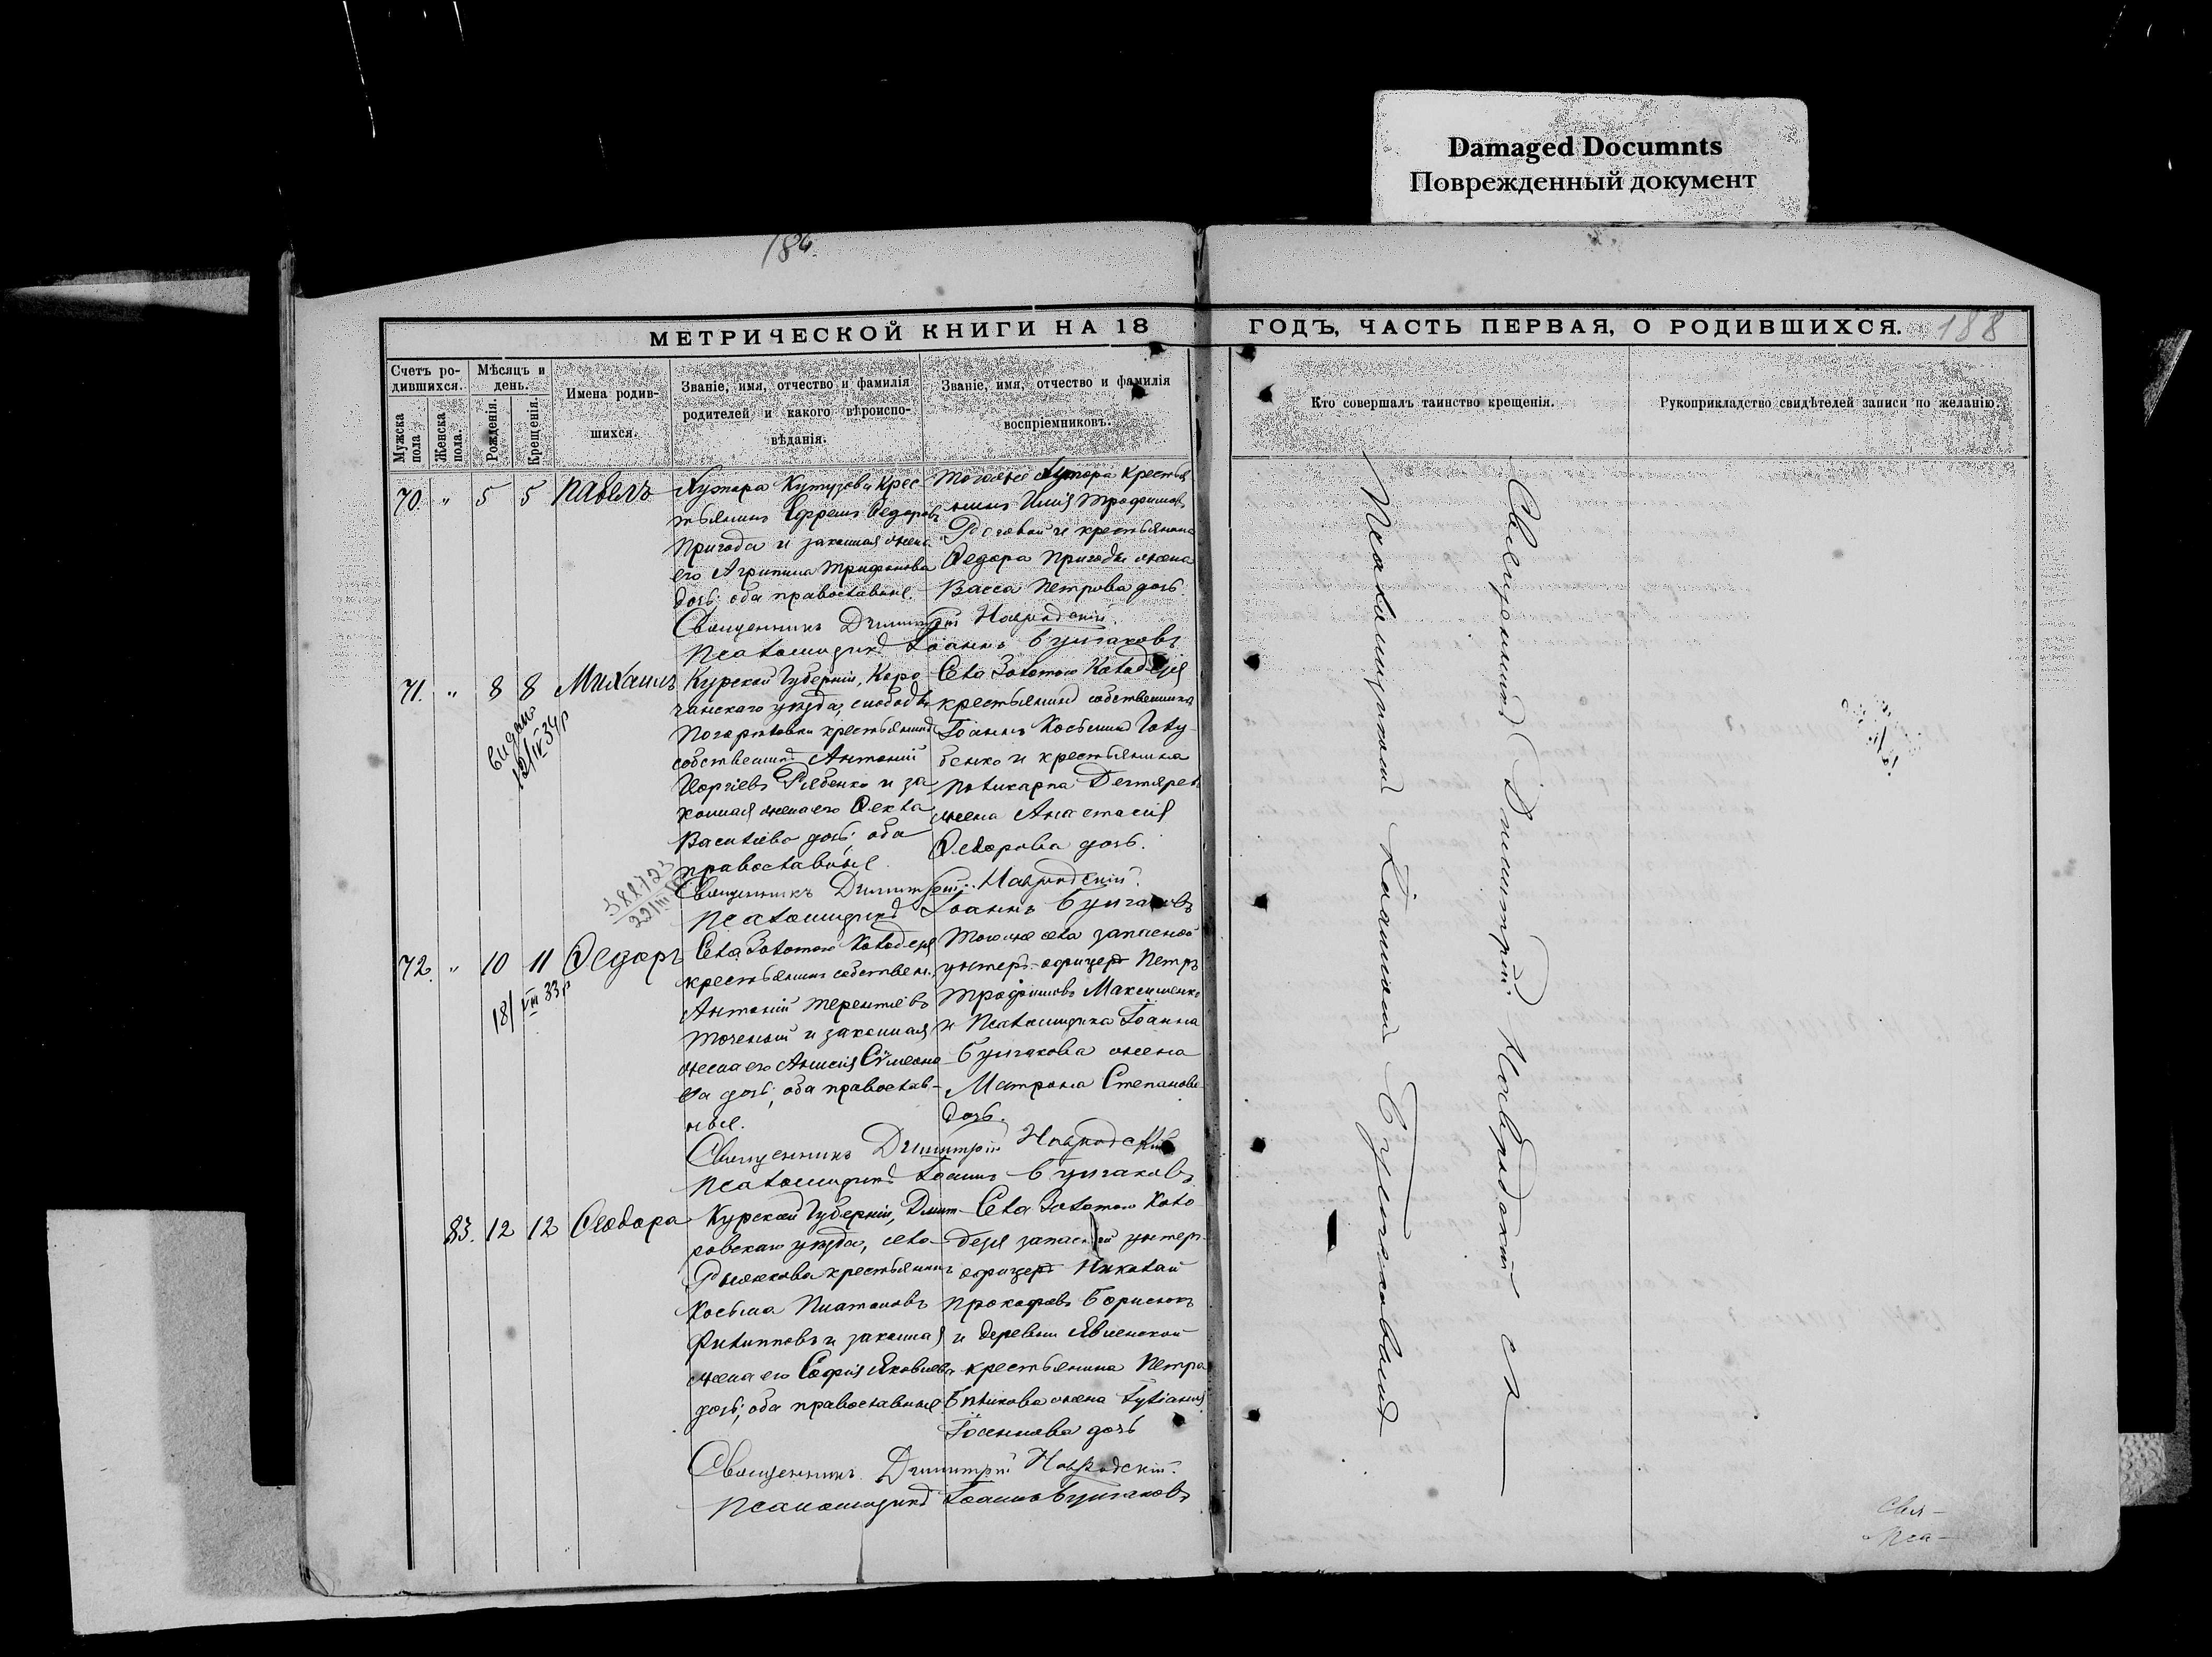 Damaged Documnts
Поврежденный документ
186.
МЕТРИЧЕСКОЙ КНИГИ НА 18
ГОДЪ, ЧАСТЬ ПЕРВАЯ, О РОДИВШИХСЯ.
188
Счетъ ро-
дившихся.
Мужска
пола
Женска
пола.
Мѣсяцъ и
день.
Рожденія.
Крещенія.
Имена родив-
шихся.
Званіе, имя, отчество и фамилія
родителей и какого вѣроиспо-
вѣданія.
Званіе, имя, отчество и фамилія
воспріемниковъ.
Кто совершалъ таинство крещенія.
Рукоприкладство свидѣтелей записи по желанію.
70. " 5 5 Павелъ
Хутора Кутузова крес
тьянинъ Ефремъ Ѳедоровъ
Пригода и законная жена
его Агрипина Трифонова
дочь; оба православные.
Тогоже хутора крестья
нинъ Илія Трофимовъ
и крестьянина
Ѳедора Пригоды жена
Васса Петрова дочь.
Священникъ Димитрій Навродскій.
Псаломщикъ Іоаннъ Булгаковъ
71. " 8 8 Михаилъ
Видано
12/IV 34р
Курской Губерніи, Коро
чанскаго уѣзда, слободы
крестьянинъ
собственникъ Антоній
Георгіевъ Рябенко и за
конная жена его Ѳекла
Василіева дочь; оба
православные.
Села Золотого Колодезя
крестьянинъ собственникъ
Іоаннъ Косьминъ Голу
бенко и крестьянина
Поликарпа Дегтярев
жена Анастасія
Ѳедорова дочь.
388723
22/III
Священникъ Димитрій Навродскій.
Псаломщикъ Іоаннъ Булгаковъ
72. " 10 11 Ѳедоръ
18/VIII 33р
Села Золотого Колодезя
крестьянинъ собствен.
Антоній Терентіевъ
Точеный и законная
жена его Анисія Сѵмеоно
ва дочь; оба православ-
ные.
Тогоже села запасной
унтеръ-офицеръ Петръ
Трофимовъ Максименко
и Псаломщика Іоанна
Булгакова жена
Матрона Степанова
дочь.
Священникъ Димитрій Навродскій
Псаломщикъ Іоаннъ Булгаковъ
83. 12 12 Ѳеодора
Курской Губерніи, Дмит-
ровскаго уѣзда, села
Рыжкова крестьянинъ
Косьма Платоновъ
Филипповъ и законная
жена его Софія Яковлева
дочь; оба православные
Села Золотого Коло
дезя запасной унтеръ-
офицеръ Николай
Прокофьевъ Борисюкъ
и деревни Явленской
крестьянина Петра
Бѣликова жена Іуліанія
дочь
Священникъ Димитрій Навродскій.
Псаломщикъ Іоаннъ Булгаковъ
Священникъ Димитрій Навродскій
Псаломщикъ Іоанн Булгаковъ
Свя-
Пса-